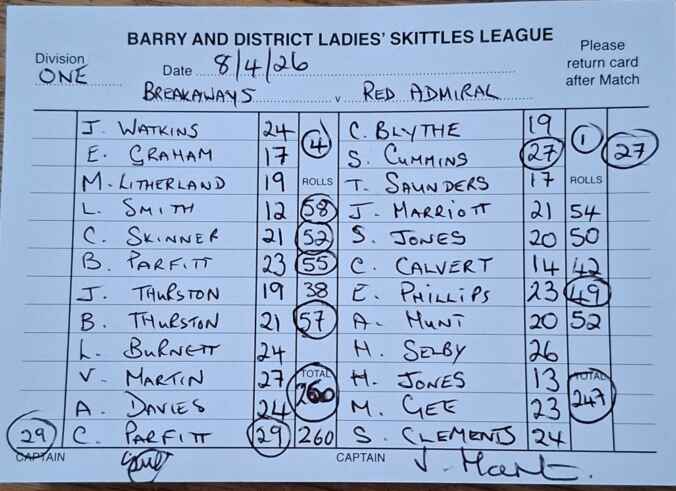 BARRY AND DISTRICT LADIES' SKITTLES LEAGUE
Division ONE
Date 8/4/26
Please return card after Match
BREAKAWAYS v RED ADMIRAL
J. WATKINS 24 4 C. BLYTHE 19 1
E. GRAHAM 17 S. CUMMINS 27 27
M. LITHERLAND 19 ROLLS T. SAUNDERS 17 ROLLS
L. SMITH 12 58 J. MARRIOTT 21 54
C. SKINNER 21 52 S. JONES 20 50
B. PARFITT 23 55 C. CALVERT 14 42
J. THURSTON 19 38 E. PHILLIPS 23 49
B. THURSTON 21 57 A. HUNT 20 52
L. BURNETT 24 H. SELBY 26
V. MARTIN 27 TOTAL 260 H. JONES 13 TOTAL 247
A. DAVIES 24 M. GEE 23
29 C. PARFITT 29 260 S. CLEMENTS 24
CAPTAIN CAPTAIN J. Hunt.